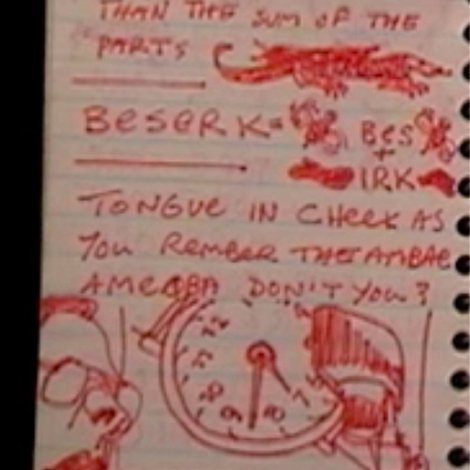 THAN THE SUM OF THE
PARTS
BESERK= BES
+
IRK
TONGUE IN CHEEK AS
YOU REMBER THE AMBAE
AMEOBA DON'T YOU?
12
11